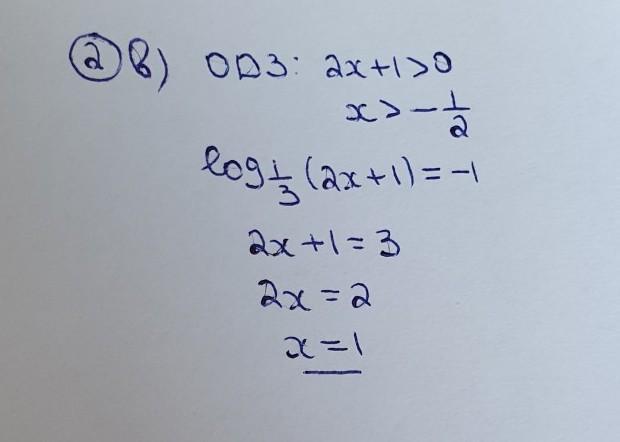 ② в) ОДЗ: 2x+1>0
x > -1/2
log_{1/3} (2x+1) = -1
2x+1=3
2x=2
x=1